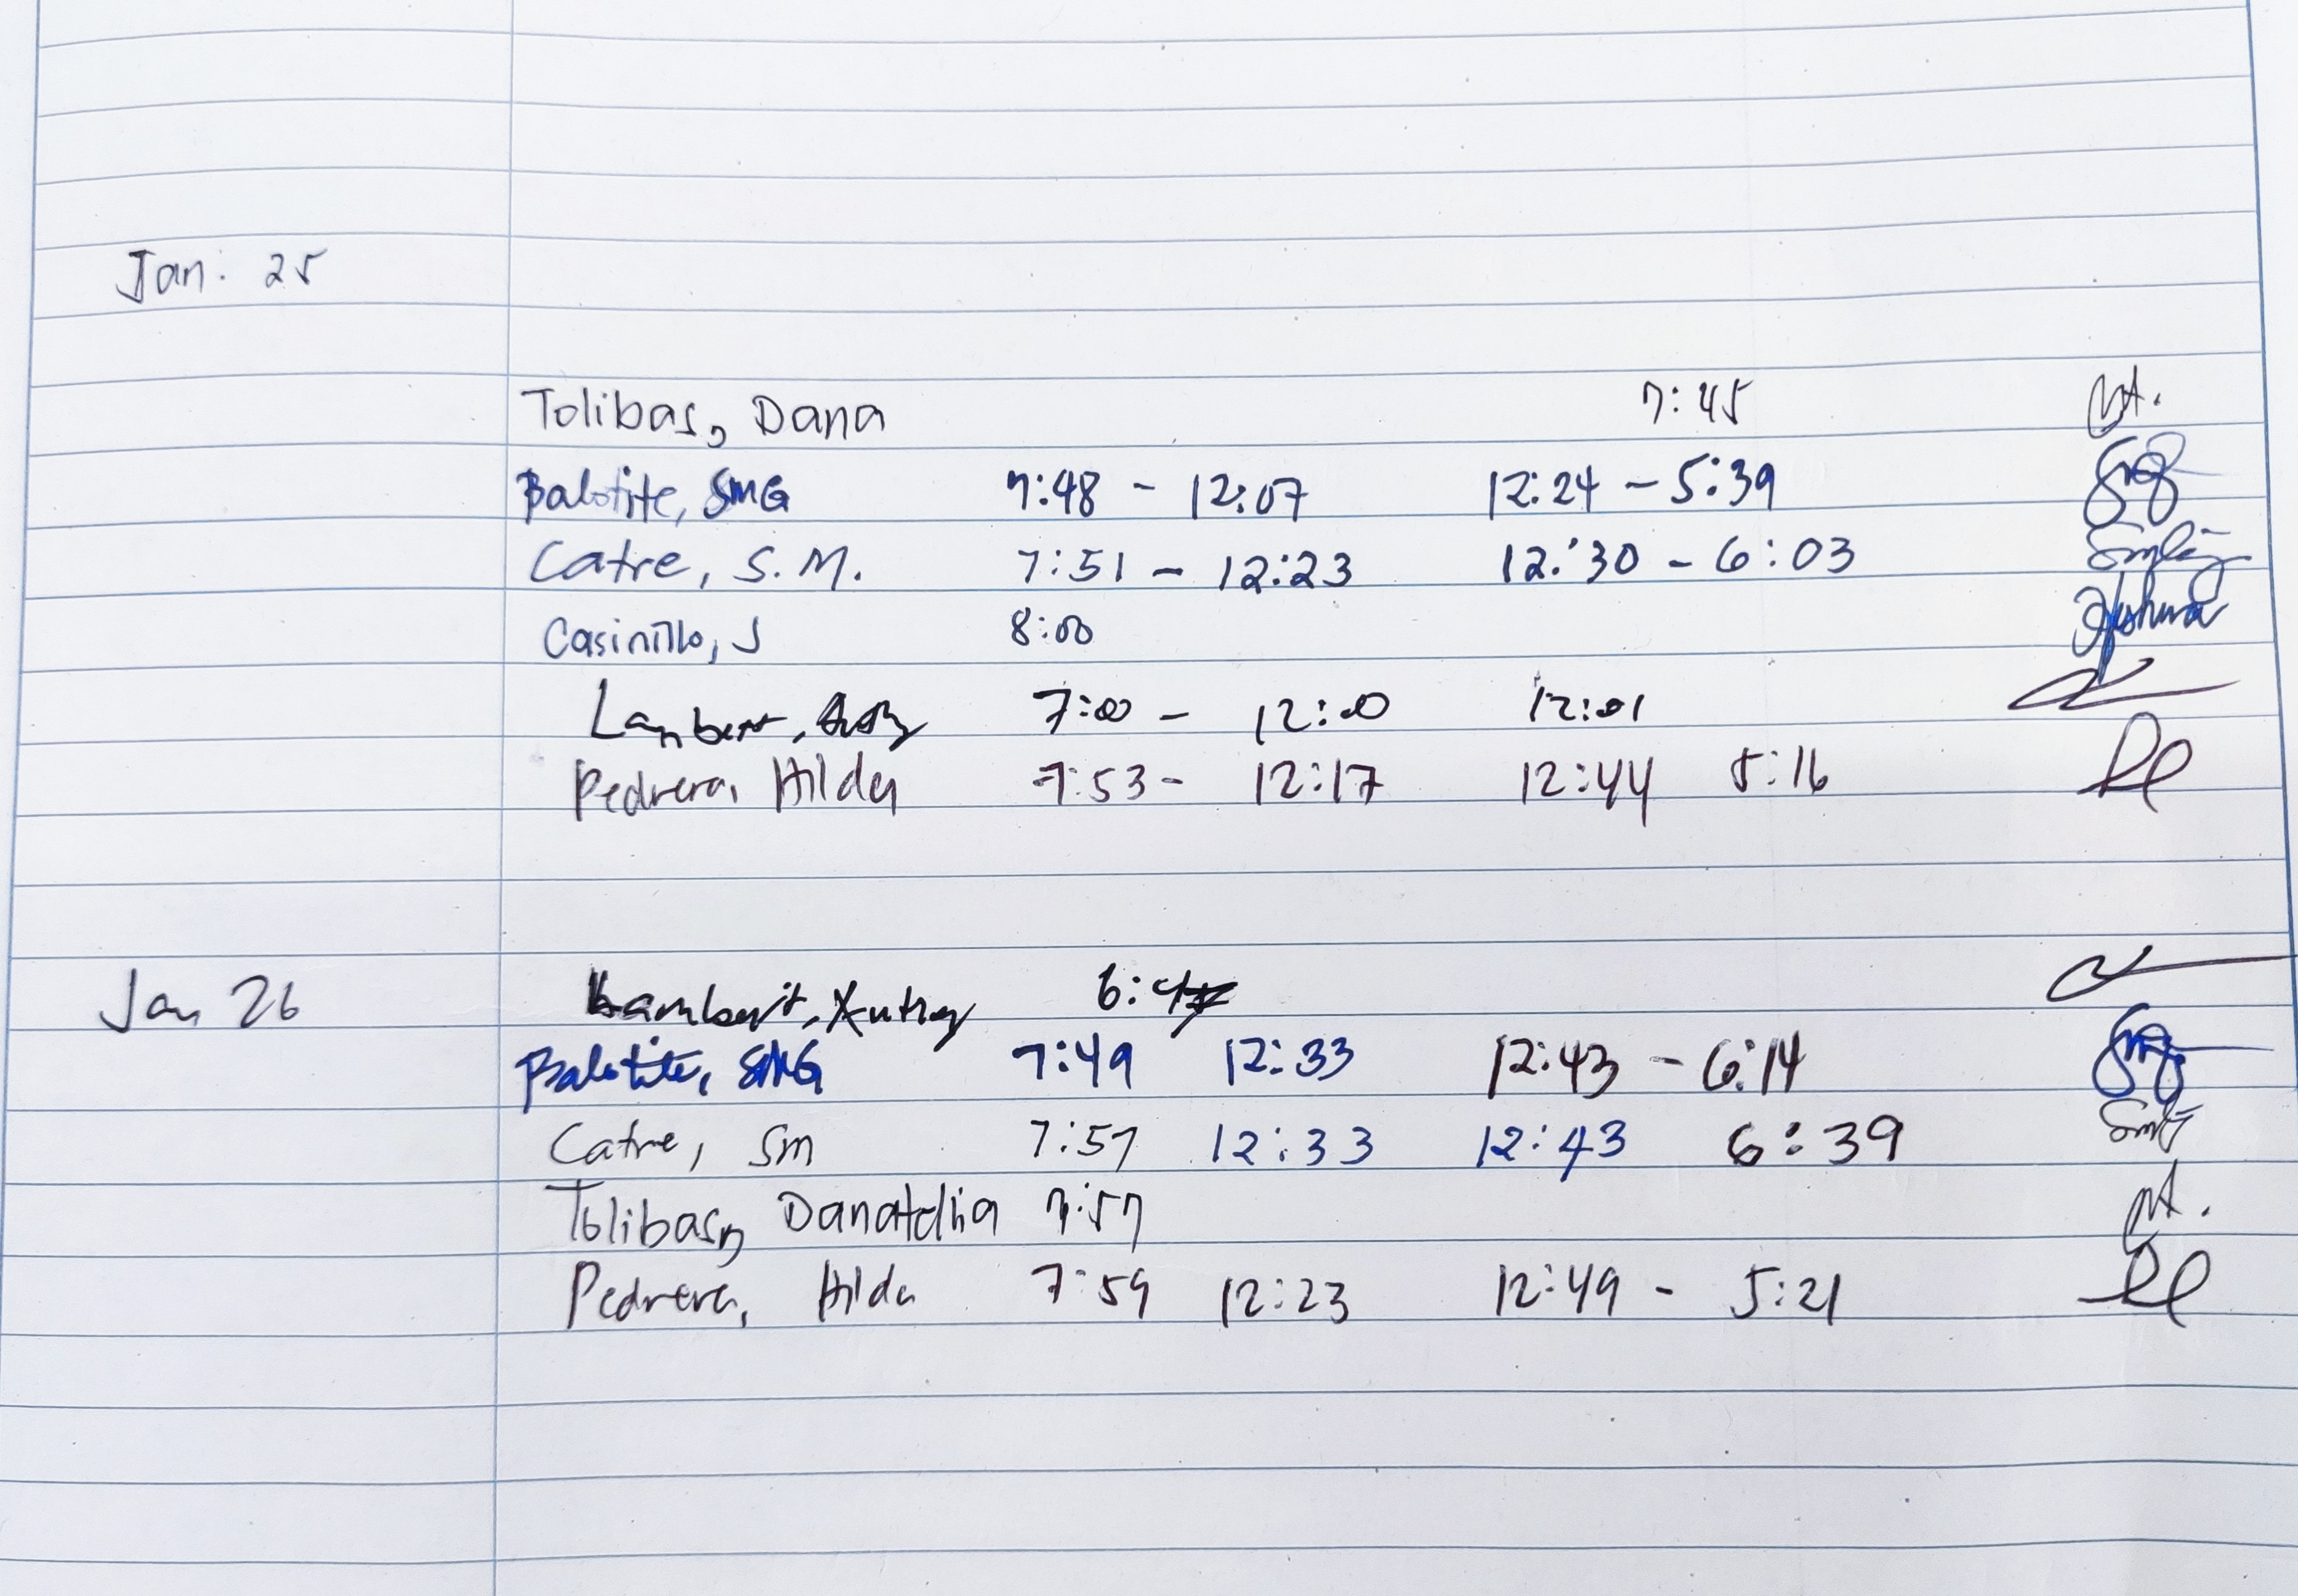 Jan. 25
Tolibas, Dana 7:45
Balotite, SMG 7:48 - 12:07 12:24 - 5:39
Catre, S.M. 7:51 - 12:23 12:30 - 6:03
Casinillo, J 8:00 Joshua
Lambert, 7:00 - 12:00 12:01
Pedrera, Hilda 7:53 - 12:17 12:44 5:16
Jan 26 Lambert, 6:47
Balotite, SMG 7:49 12:33 12:43 - 6:14
Catre, SM 7:57 12:33 12:43 6:39
Tolibas, Danatelia 7:57
Pedrera, Hilda 7:59 12:23 12:49 - 5:21